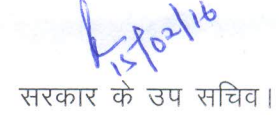 15/02/16
सरकार के उप सचिव।